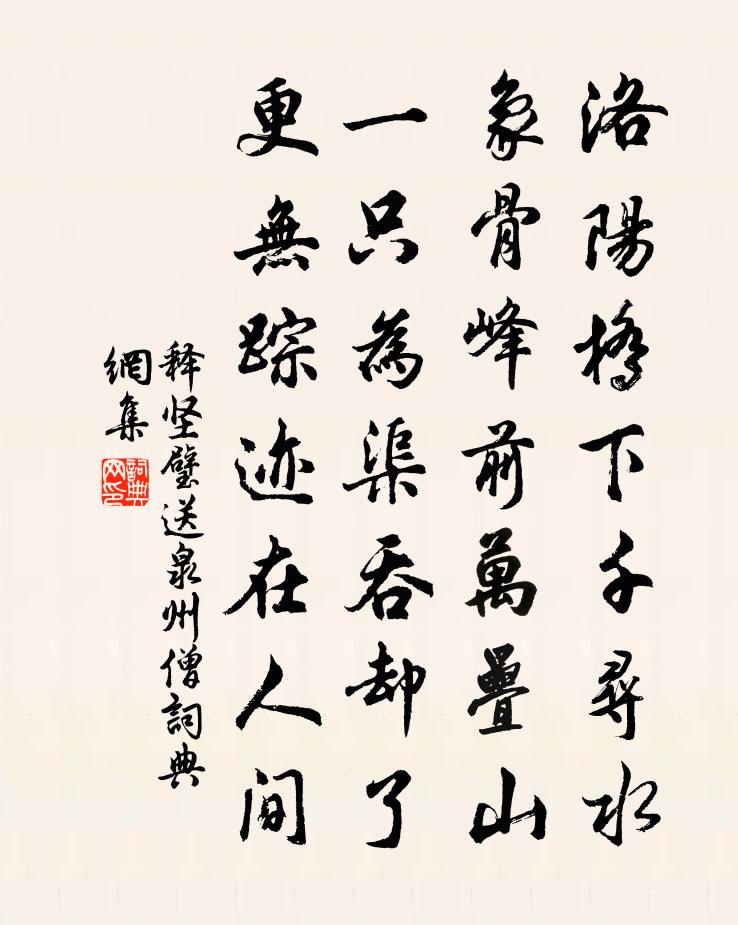 洛陽橋下千尋水
象骨峰前萬疊山
一只為渠吞却了
更無踪迹在人间
释坚璧送泉州僧詞典
網集
詞典网印